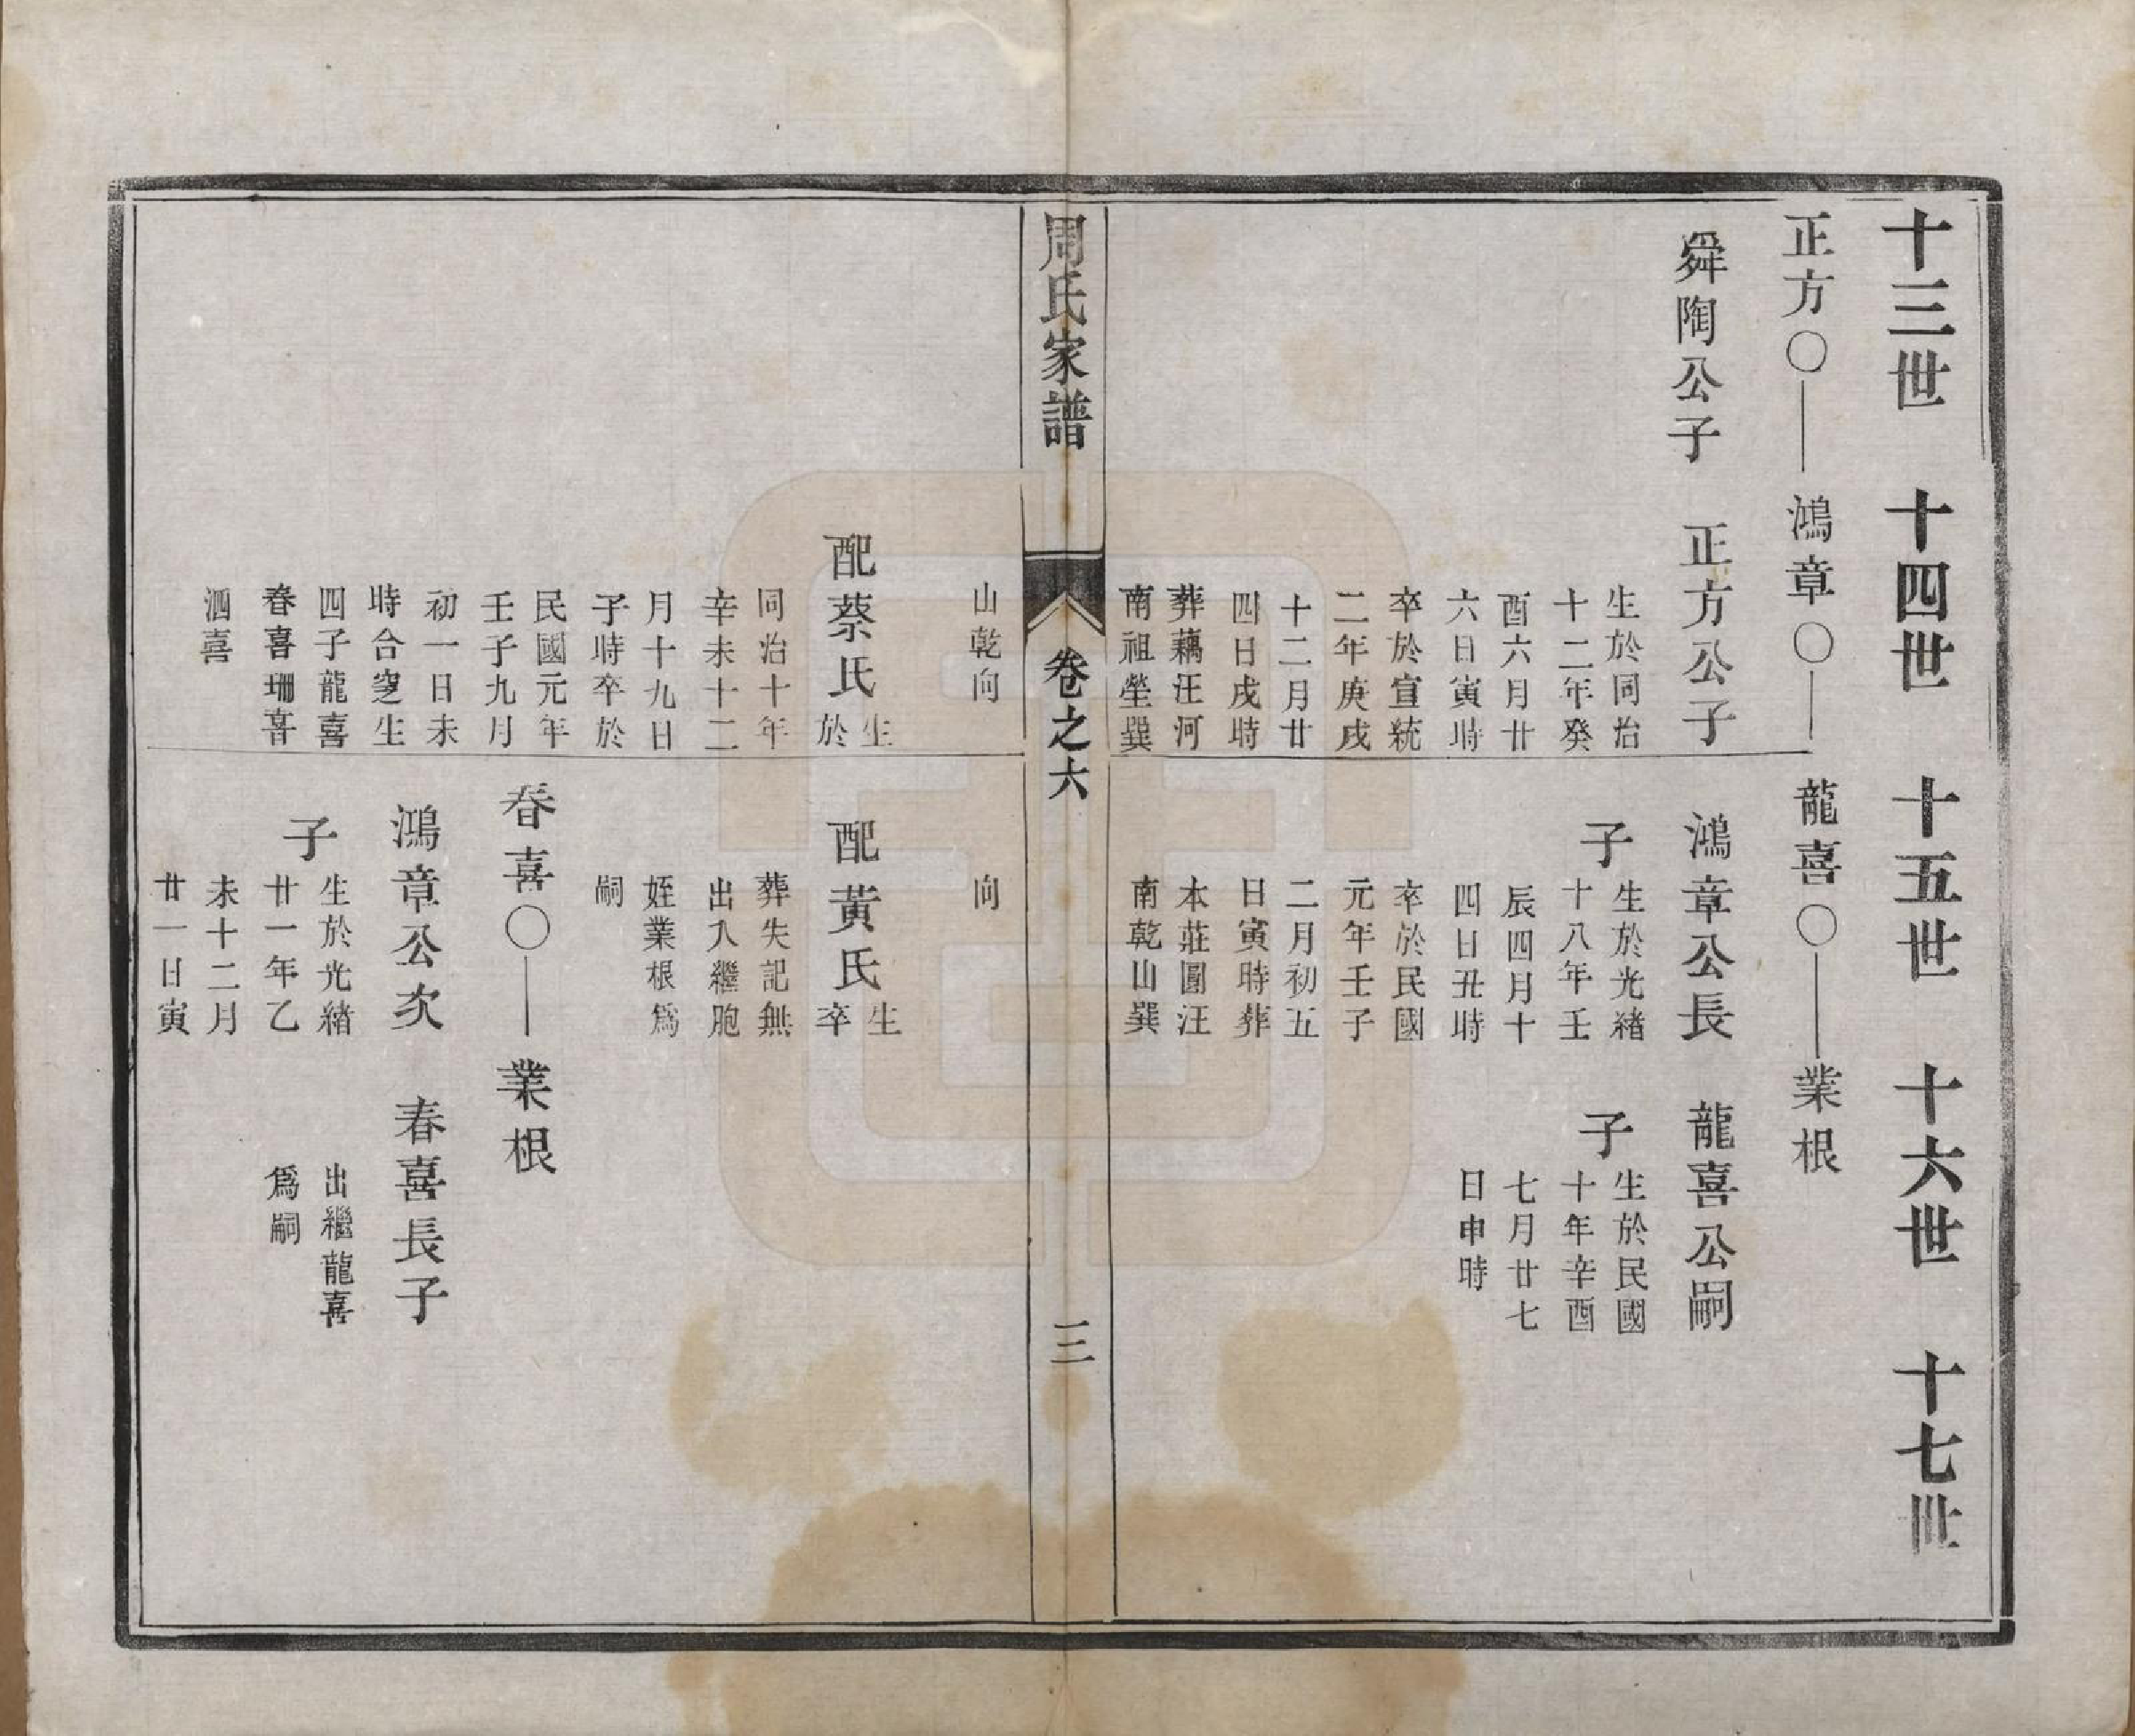 十三世 十四世 十五世 十六世 十七世
正方〇——鴻章〇——龍喜〇——業根
舜陶公子
正方公子
生於同治
十二年癸
酉六月廿
六日寅時
卒於宣統
二年庚戌
十二月廿
四日戌時
葬藕汪河
南祖塋巽
山乾向
鴻章公長
子
生於光緒
十八年壬
辰四月十
四日丑時
卒於民國
元年壬子
二月初五
日寅時葬
本莊圍汪
南乾山巽
向
龍喜公嗣
子
生於民國
十年辛酉
七月廿七
日申時
周氏家譜
卷之六
三
配蔡氏
生
於
同治十年
辛未十二
月十九日
子時卒於
民國元年
壬子九月
初一日未
時合窆生
四子龍喜
春喜珊喜
泗喜
配黃氏
生
卒
葬失記無
出入繼胞
姪業根為
嗣
春喜〇——業根
鴻章公次
子
生於光緒
廿一年乙
未十二月
廿一日寅
春喜長子
出繼龍喜
為嗣